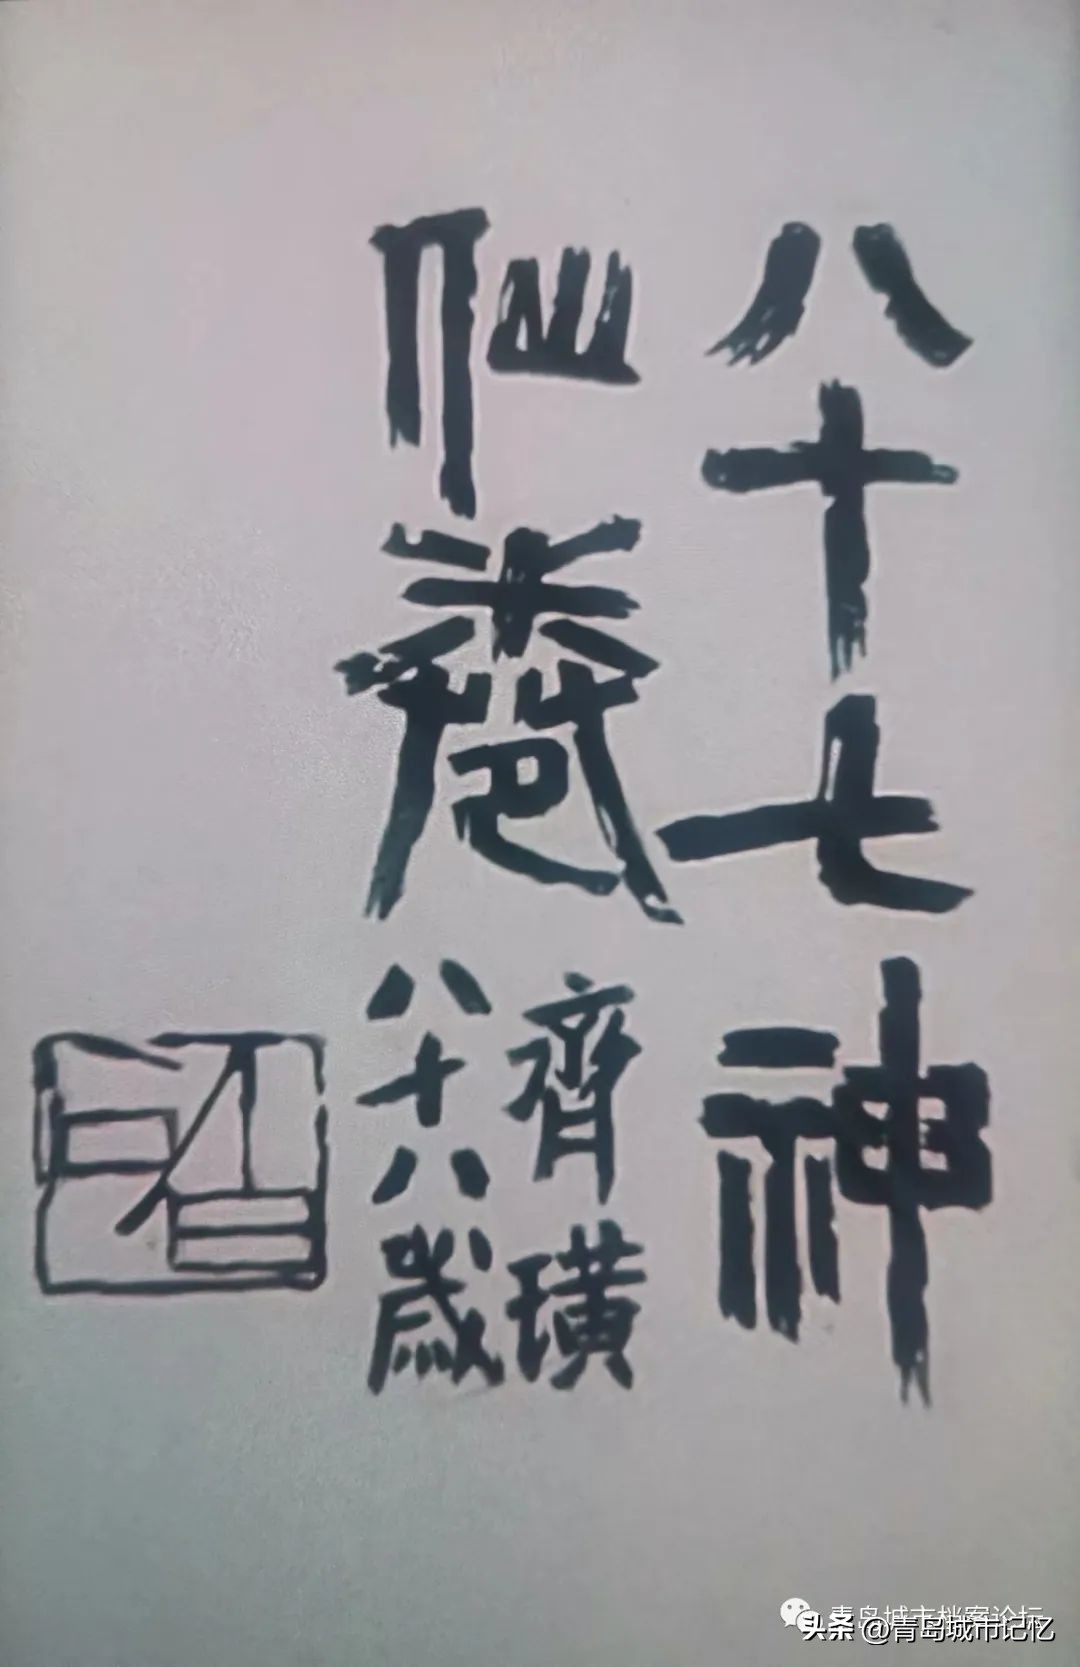 八十七神
仙卷
齊璜
八十八歲
白石
青岛城市档案论坛
头条 @青岛城市记忆